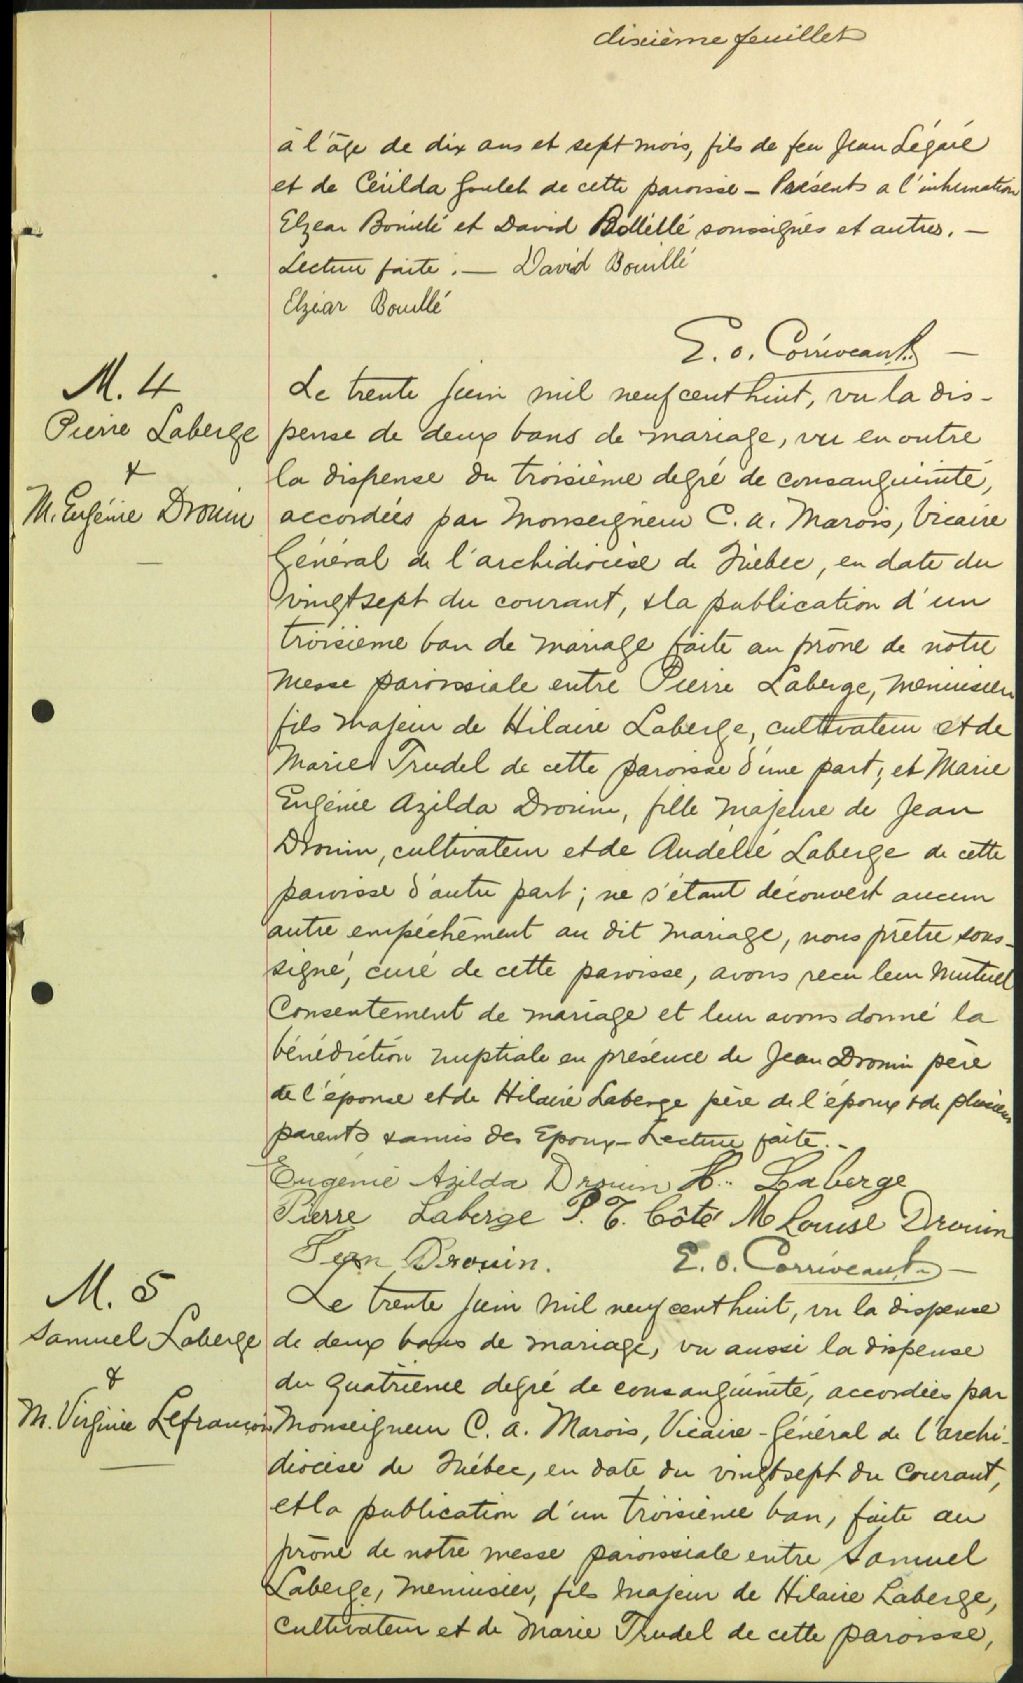 dixième feuillet
à l'âge de dix ans et sept mois, fils de feu Jean Légaré
et de Cérilda Goulet de cette paroisse - Présents a l'inhumation
Elzear Bouillé et David Bouillé soussignés et autres. -
Lecture faite. - David Bouillé
Elzéar Bouillé
E. O. Corriveau Ptr. -
M. 4
Pierre Laberge
&
M. Eugénie Drouin
Le trente juin mil neuf cent huit, vu la dis-
pense de deux bans de mariage, vu en outre
la dispense du troisième degré de consanguinité,
accordées par Monseigneur C. A. Marois, Vicaire
Général de l'archidiocèse de Québec, en date du
vingt sept du courant, & la publication d'un
troisième ban de mariage faite au prône de notre
messe paroissiale entre Pierre Laberge, menuisier
fils majeur de Hilaire Laberge, cultivateur et de
Marie Trudel de cette paroisse d'une part; et Marie
Eugénie Azilda Drouin, fille majeure de Jean
Drouin, cultivateur et de Audélie Laberge de cette
paroisse d'autre part; ne s'étant découvert aucun
autre empêchement au dit mariage, nous prêtre sous-
signé, curé de cette paroisse, avons reçu leur mutuel
Consentement de mariage et leur avons donné la
bénédiction nuptiale en présence de Jean Drouin père
de l'épouse et de Hilaire Laberge père de l'époux & de plusieurs
parents & amis des Epoux - Lecture faite. -
Eugénie Azilda Drouin H. Laberge
Pierre Laberge P. T. Côté M Louise Drouin
Jean Drouin. E. O. Corriveau Ptr. -
M. 5
Samuel Laberge
&
M. Virginie Lefrançois
Le trente juin mil neuf cent huit, vu la dispense
de deux bans de mariage, vu aussi la dispense
du quatrième degré de consanguinité, accordées par
Monseigneur C. A. Marois, Vicaire-Général de l'archi-
diocèse de Québec, en date du vingt sept du Courant,
et la publication d'un troisième ban, faite au
prône de notre messe paroissiale entre Samuel
Laberge, menuisier, fils majeur de Hilaire Laberge,
Cultivateur et de Marie Trudel de cette paroisse,